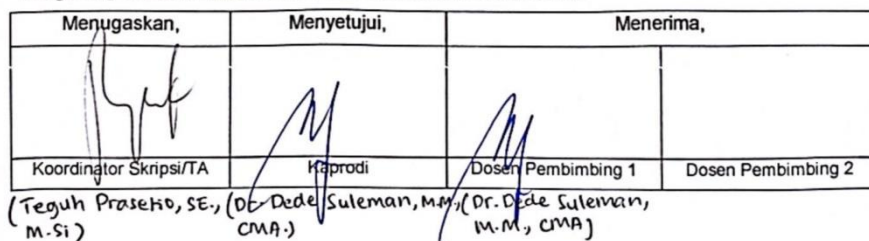 Menugaskan, Menyetujui, Menerima,
Koordinator Skripsi/TA Kaprodi Dosen Pembimbing 1 Dosen Pembimbing 2
(Teguh Prasetio, SE., (Dr. Dede Suleman, M.M., (Dr. Dede Suleman,
M.Si) CMA.) M.M., CMA)